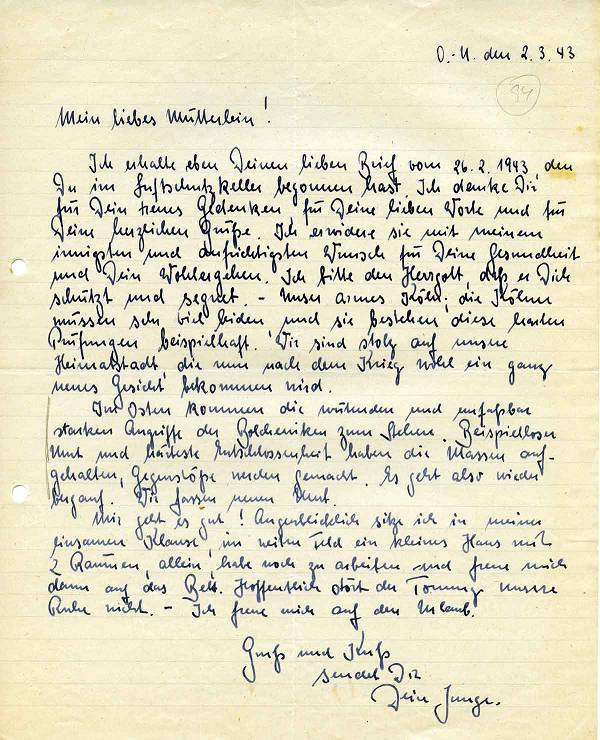 O.-U. den 2.3.43
94
Mein liebes Mütterlein!
Ich erhalte eben Deinen lieben Brief vom 26.2.1943, den
Du im Luftschutzkeller begonnen hast. Ich danke Dir
für Dein treues Gedenken, für Deine lieben Worte und für
Deine herzlichen Grüße. Ich erwidere sie mit meinem
innigsten und aufrichtigsten Wunsch für Deine Gesundheit
und Dein Wohlergehen. Ich bitte den Herrgott, daß er Dich
schützt und segnet. - Unser armes Köln; die Kölner
müssen sehr viel leiden und sie bestehen diese harten
Prüfungen beispielhaft. Wir sind stolz auf unsere
Heimatstadt, die nun nach dem Krieg wohl ein ganz
neues Gesicht bekommen wird.
Im Osten kommen die wütenden und unfaßbar
starken Angriffe der Bolschewiken zum Stehen. Beispielloser
Mut und härteste Entschlossenheit haben die Massen auf-
gehalten, Gegenstöße werden gemacht. Es geht also wieder
bergauf. Wir fassen neuen Mut.
Mir geht es gut! Augenblicklich sitze ich in meiner
einsamen Klause, im weiten Feld ein kleines Haus mit
2 Räumen, allein, habe noch zu arbeiten und freue mich
dann auf das Bett. Hoffentlich stört der Tommy unsere
Ruhe nicht. - Ich freue mich auf den Urlaub.
Gruß und Kuß
sendet Dir
Dein Junge.